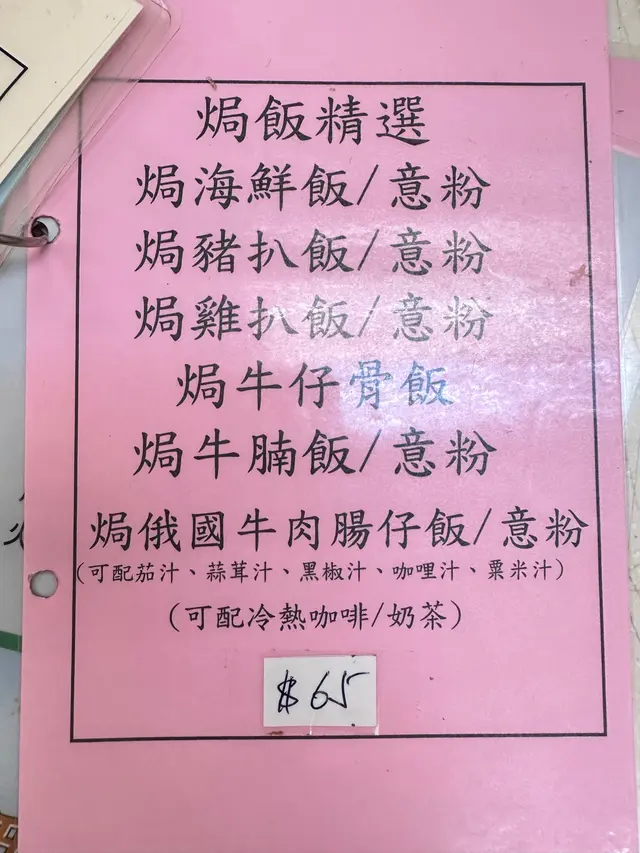 焗飯精選
焗海鮮飯/意粉
焗豬扒飯/意粉
焗雞扒飯/意粉
焗牛仔骨飯
焗牛腩飯/意粉
焗俄國牛肉腸仔飯/意粉
(可配茄汁、蒜茸汁、黑椒汁、咖哩汁、粟米汁)
(可配冷熱咖啡/奶茶)
$65